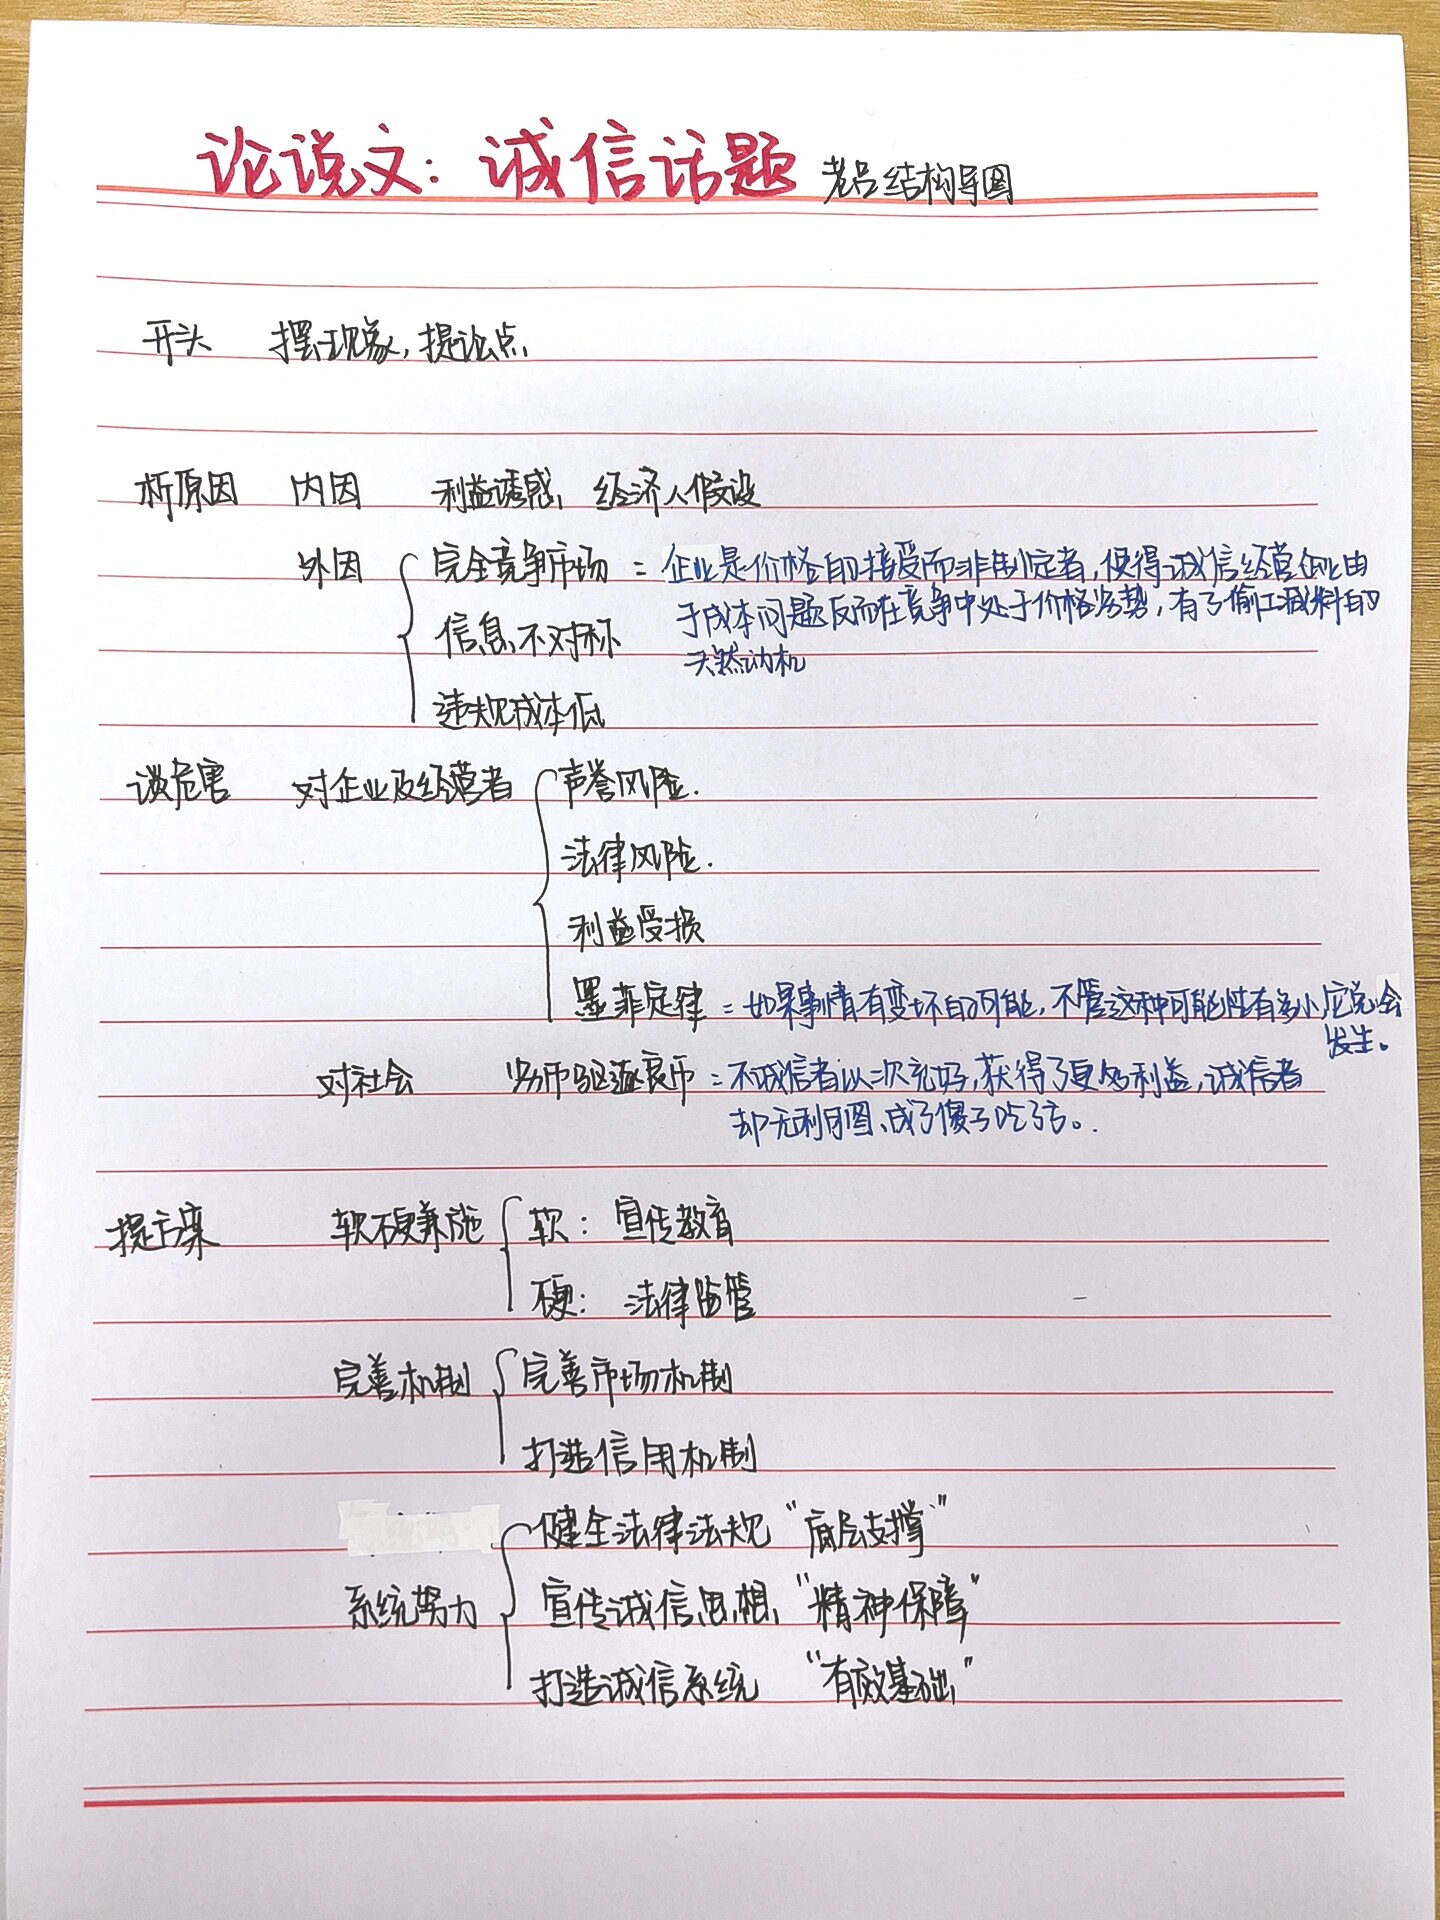 论说文：诚信话题 老吕结构导图
开头 摆现象，提论点
析原因 内因 利益诱惑、经济人假设
外因 完全竞争市场 = 企业是价格的接受而非制定者，使得诚信经营企业由
于成本问题反而在竞争中处于价格劣势，有了偷工减料的
天然动机
信息不对称
违规成本低
谈危害 对企业及经营者 声誉风险.
法律风险.
利益受损
墨菲定律 = 如果事情有变坏的可能，不管这种可能性有多小，它总会
发生。
对社会 劣币驱逐良币 = 不诚信者以次充好，获得了更多利益，诚信者
却无利可图、成了傻子吃了亏。
提方案 软硬兼施 软：宣传教育
硬：法律监管
完善机制 完善市场机制
打造信用机制
系统努力 健全法律法规 “底层支撑”
宣传诚信思想 “精神保障”
打造诚信系统 “有效基础”